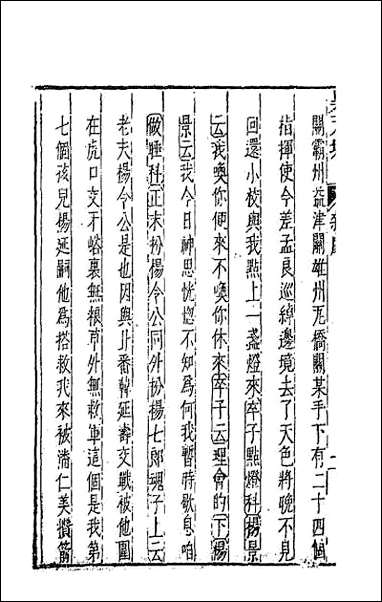 關霸州益津關雄州瓦橋關某手下有二十四個
指揮使今差孟良巡綽邊境去了天色將晚不見
回還小校與我點上一盞燈來卒子點燈科楊景
云我喚你便來不喚你休來卒子云理會的下楊
景云我今日神思恍惚不知爲何我暫時歇息咱
做睡科正末扮楊令公同外扮楊七郎魂子上云
老夫楊令公是也因與北番韓延壽交戰被他圍
在虎口交牙峪裏無粮草外無救軍這個是我第
七個孩兒楊延嗣他爲搭救我來被潘仁美攢箭